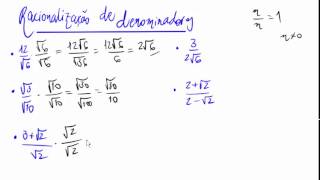 Racionalização de denominadores
n/n = 1
n≠0
• 12/√6 · √6/√6 = 12√6/√36 = 12√6/6 = 2√6
• 3/(2√6)
• √3/√10 · √10/√10 = √30/√100 = √30/10
• (2+√2)/(2-√2)
• (3+√2)/√2 · √2/√2